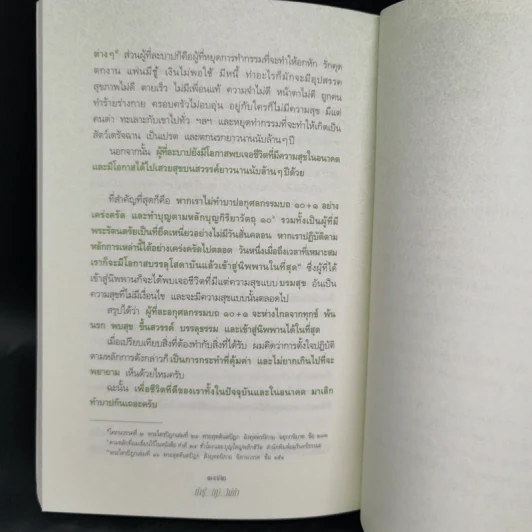 ต่างๆ⁴ ส่วนผู้ที่ละบาปก็คือผู้ที่หยุดการทำกรรมที่จะทำให้อกหัก รักคุด
ตกงาน แฟนมีชู้ เงินไม่พอใช้ มีหนี้ ทำอะไรก็มักจะมีอุปสรรค
สุขภาพไม่ดี ตายเร็ว ไม่มีเพื่อนแท้ ความจำไม่ดี หน้าตาไม่ดี ถูกคน
ทำร้ายร่างกาย ครอบครัวไม่อบอุ่น อยู่กับใครก็ไม่มีความสุข มีแต่
คนด่า ทะเลาะกับเขาไปทั่ว ฯลฯ และหยุดทำกรรมที่จะทำให้เกิดเป็น
สัตว์เดรัจฉาน เป็นเปรต และตกนรกยาวนานนับล้านๆ ปี
นอกจากนั้น ผู้ที่ละบาปยังมีโอกาสพบเจอชีวิตที่มีความสุขในอนาคต
และมีโอกาสได้ไปเสวยสุขบนสวรรค์ยาวนานนับล้านๆ ปีด้วย
ที่สำคัญที่สุดก็คือ หากเราไม่ทำบาปอกุศลกรรมบถ ๑๐+๑ อย่าง
เคร่งครัด และทำบุญตามหลักบุญกิริยาวัตถุ ๑๐ รวมทั้งเป็นผู้ที่มี
พระรัตนตรัยเป็นที่ยึดเหนี่ยวอย่างไม่มีวันสั่นคลอน หากเราปฏิบัติตาม
หลักการเหล่านี้ได้อย่างเคร่งครัดไปตลอด วันหนึ่งเมื่อถึงเวลาที่เหมาะสม
เราก็จะมีโอกาสบรรลุโสดาบันแล้วเข้าสู่นิพพานในที่สุด ซึ่งผู้ที่ได้
เข้าสู่นิพพานก็จะได้พบเจอชีวิตที่มีแต่ความสุขแบบ บรมสุข อันเป็น
ความสุขที่ไม่มีเงื่อนไข และจะมีความสุขแบบนั้นตลอดไป
สรุปได้ว่า ผู้ที่ละอกุศลกรรมบถ ๑๐+๑ จะห่างไกลจากทุกข์ พ้น
นรก พบสุข ขึ้นสวรรค์ บรรลุธรรม และเข้าสู่นิพพานได้ในที่สุด
เมื่อเปรียบเทียบสิ่งที่ต้องทำกับสิ่งที่ได้รับ ผมคิดว่าการตั้งใจปฏิบัติ
ตามหลักการดังกล่าวก็ เป็นการกระทำที่คุ้มค่า และไม่ยากเกินไปที่จะ
พยายาม เห็นด้วยไหมครับ
ฉะนั้น เพื่อชีวิตที่ดีของเราทั้งในปัจจุบันและในอนาคต มาเลิก
ทำบาปกันเถอะครับ
พระไตรปิฎกเล่มที่ พระสุตตันตปิฎก อังคุตตรนิกาย ข้อ